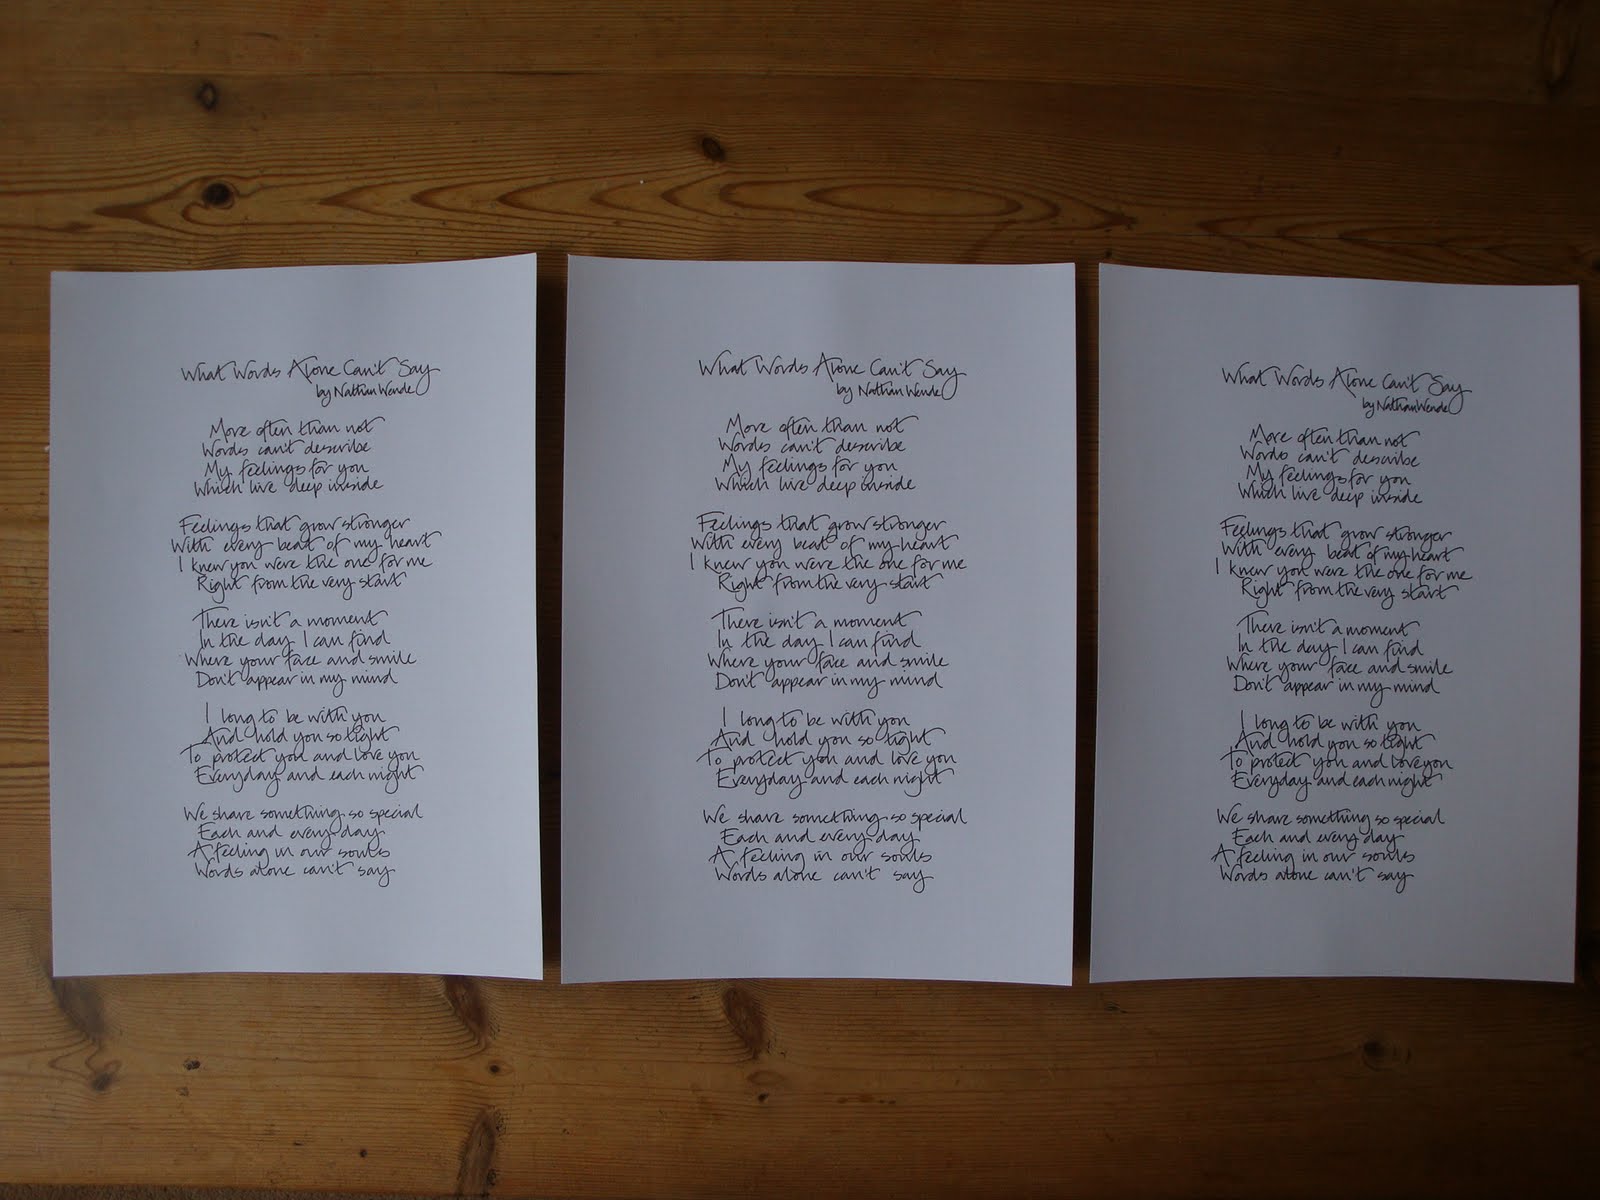 What Words Alone Can't Say
by Nathan Wende
More often than not
Words can't describe
My feelings for you
Which live deep inside
Feelings that grow stronger
With every beat of my heart
I knew you were the one for me
Right from the very start
There isn't a moment
In the day I can find
Where your face and smile
Don't appear in my mind
I long to be with you
And hold you so tight
To protect you and love you
Everyday and each night
We share something so special
Each and every day
A feeling in our souls
Words alone can't say
What Words Alone Can't Say
by Nathan Wende
More often than not
Words can't describe
My feelings for you
Which live deep inside
Feelings that grow stronger
With every beat of my heart
I knew you were the one for me
Right from the very start
There isn't a moment
In the day I can find
Where your face and smile
Don't appear in my mind
I long to be with you
And hold you so tight
To protect you and love you
Everyday and each night
We share something so special
Each and every day
A feeling in our souls
Words alone can't say
What Words Alone Can't Say
by Nathan Wende
More often than not
Words can't describe
My feelings for you
Which live deep inside
Feelings that grow stronger
With every beat of my heart
I knew you were the one for me
Right from the very start
There isn't a moment
In the day I can find
Where your face and smile
Don't appear in my mind
I long to be with you
And hold you so tight
To protect you and love you
Everyday and each night
We share something so special
Each and every day
A feeling in our souls
Words alone can't say